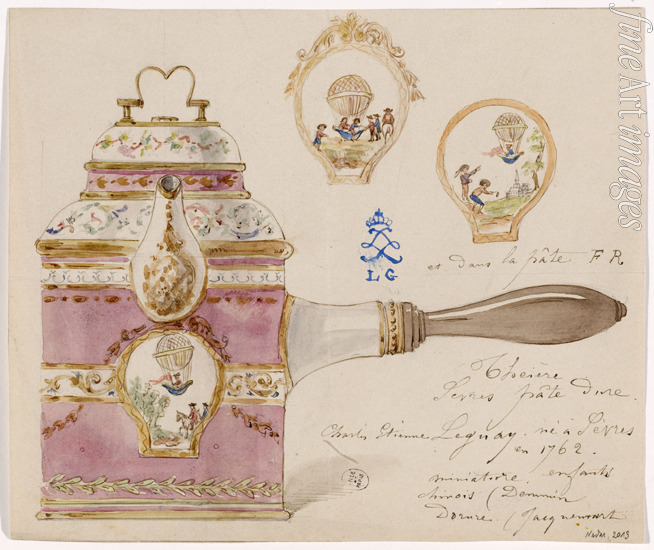 fine Art images
L G
et dans la pâte F R
Théière
Sevres pâte dure.
Charles Etienne Leguay. né à Sèvres
en 1762.
miniature. enfants
chinois (Demmin
Dorure. (Jacquemart